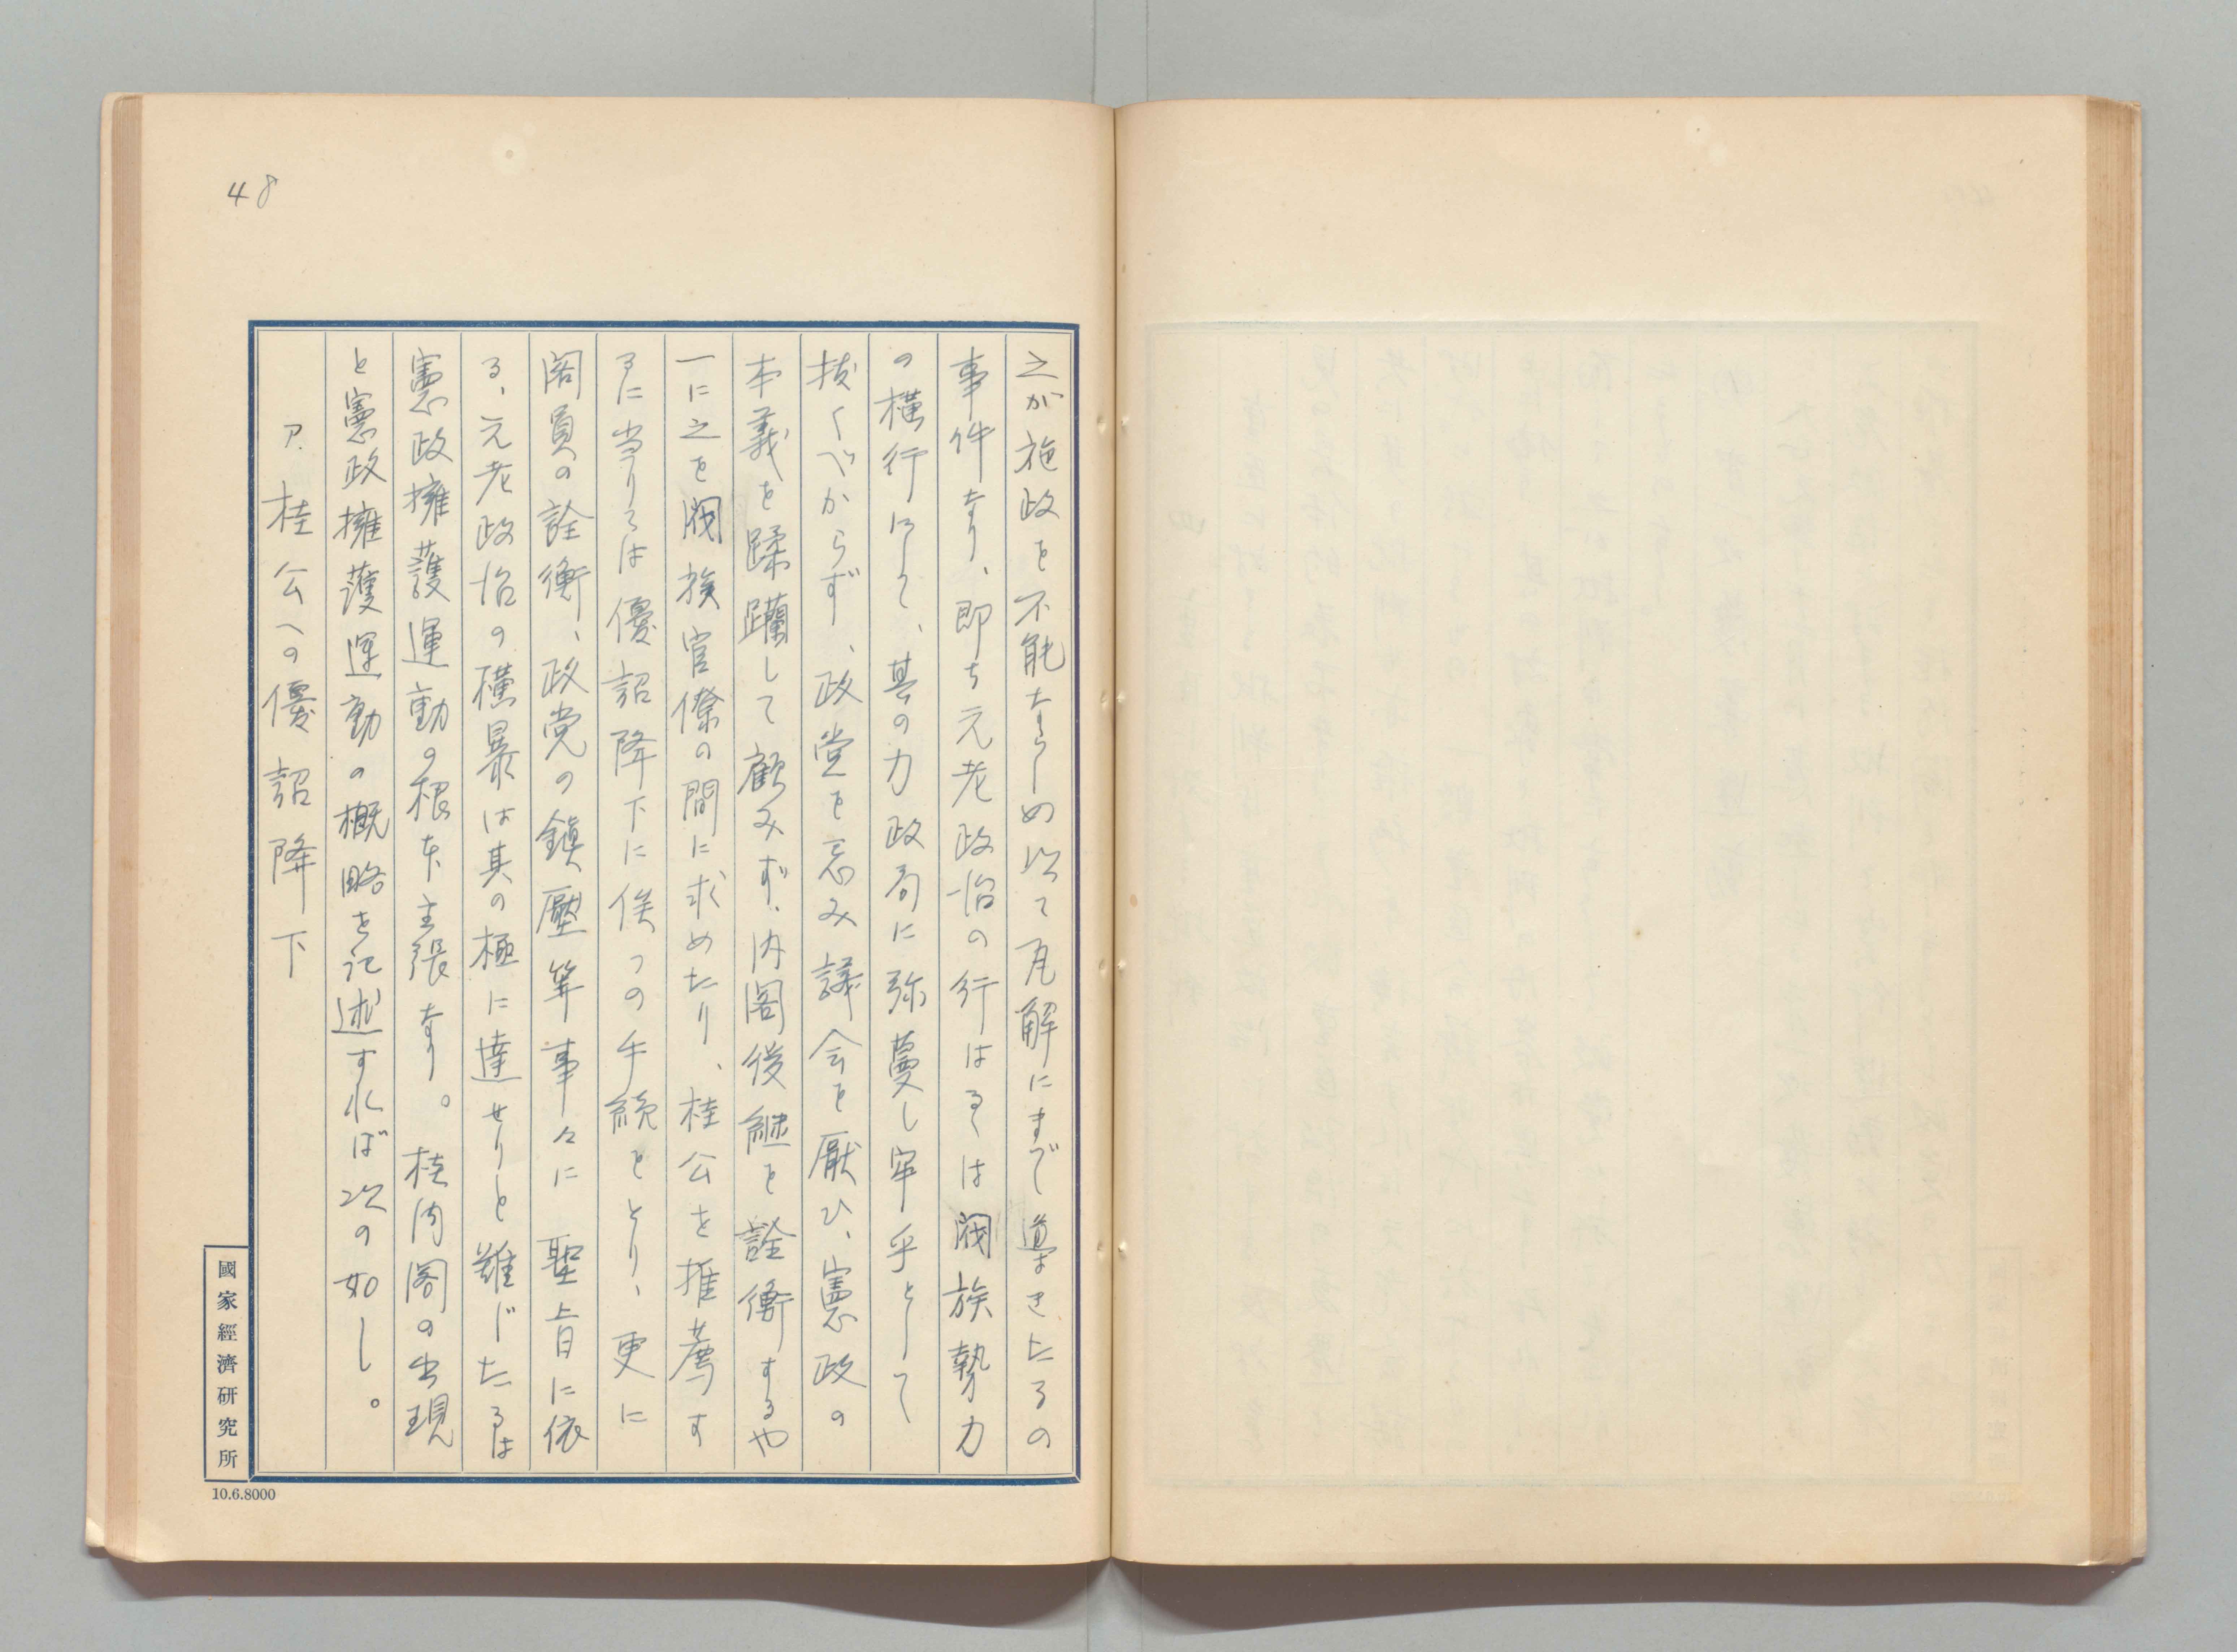 48
之が施政を不能ならしめ以て瓦解にまで導きたるの
事件なり、即ち元老政治の行はるゝは閥族勢力
の横行にして、其の力政局に弥蔓し牢乎として
抜くべからず、政党を忌み議会を厭ひ、憲政の
本義を蹂躙して顧みず、内閣後継を詮衡するや
一に之を閥族官僚の間に求めたり、桂公を推薦す
るに当りては優詔降下に俟つの手続をとり、更に
閣員の詮衡、政党の鎮壓等事々に聖旨に依
る、元老政治の横暴は其の極に達せりと難じたるは
憲政擁護運動の根本主張なり。桂内閣の出現
と憲政擁護運動の概略を記述すれば次の如し。
ア.桂公への優詔降下
國家經濟研究所
10.6.8000